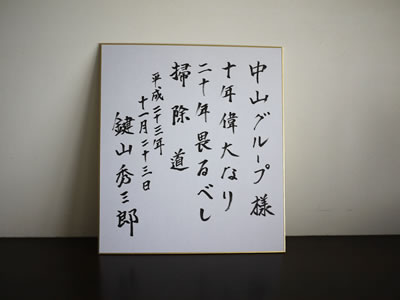 中山グループ様
十年偉大なり
二十年畏るべし
掃除道
平成二十三年
十一月二十三日
鍵山秀三郎